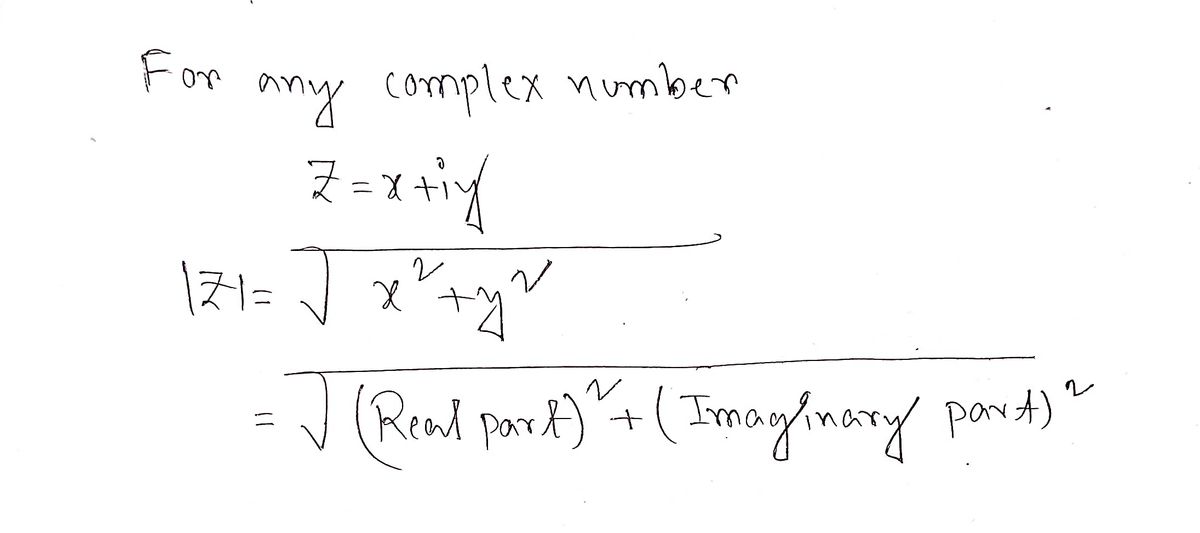 For any complex number
Z = x + iy
|Z| = √(x² + y²)
= √((Real part)² + (Imaginary part)²)